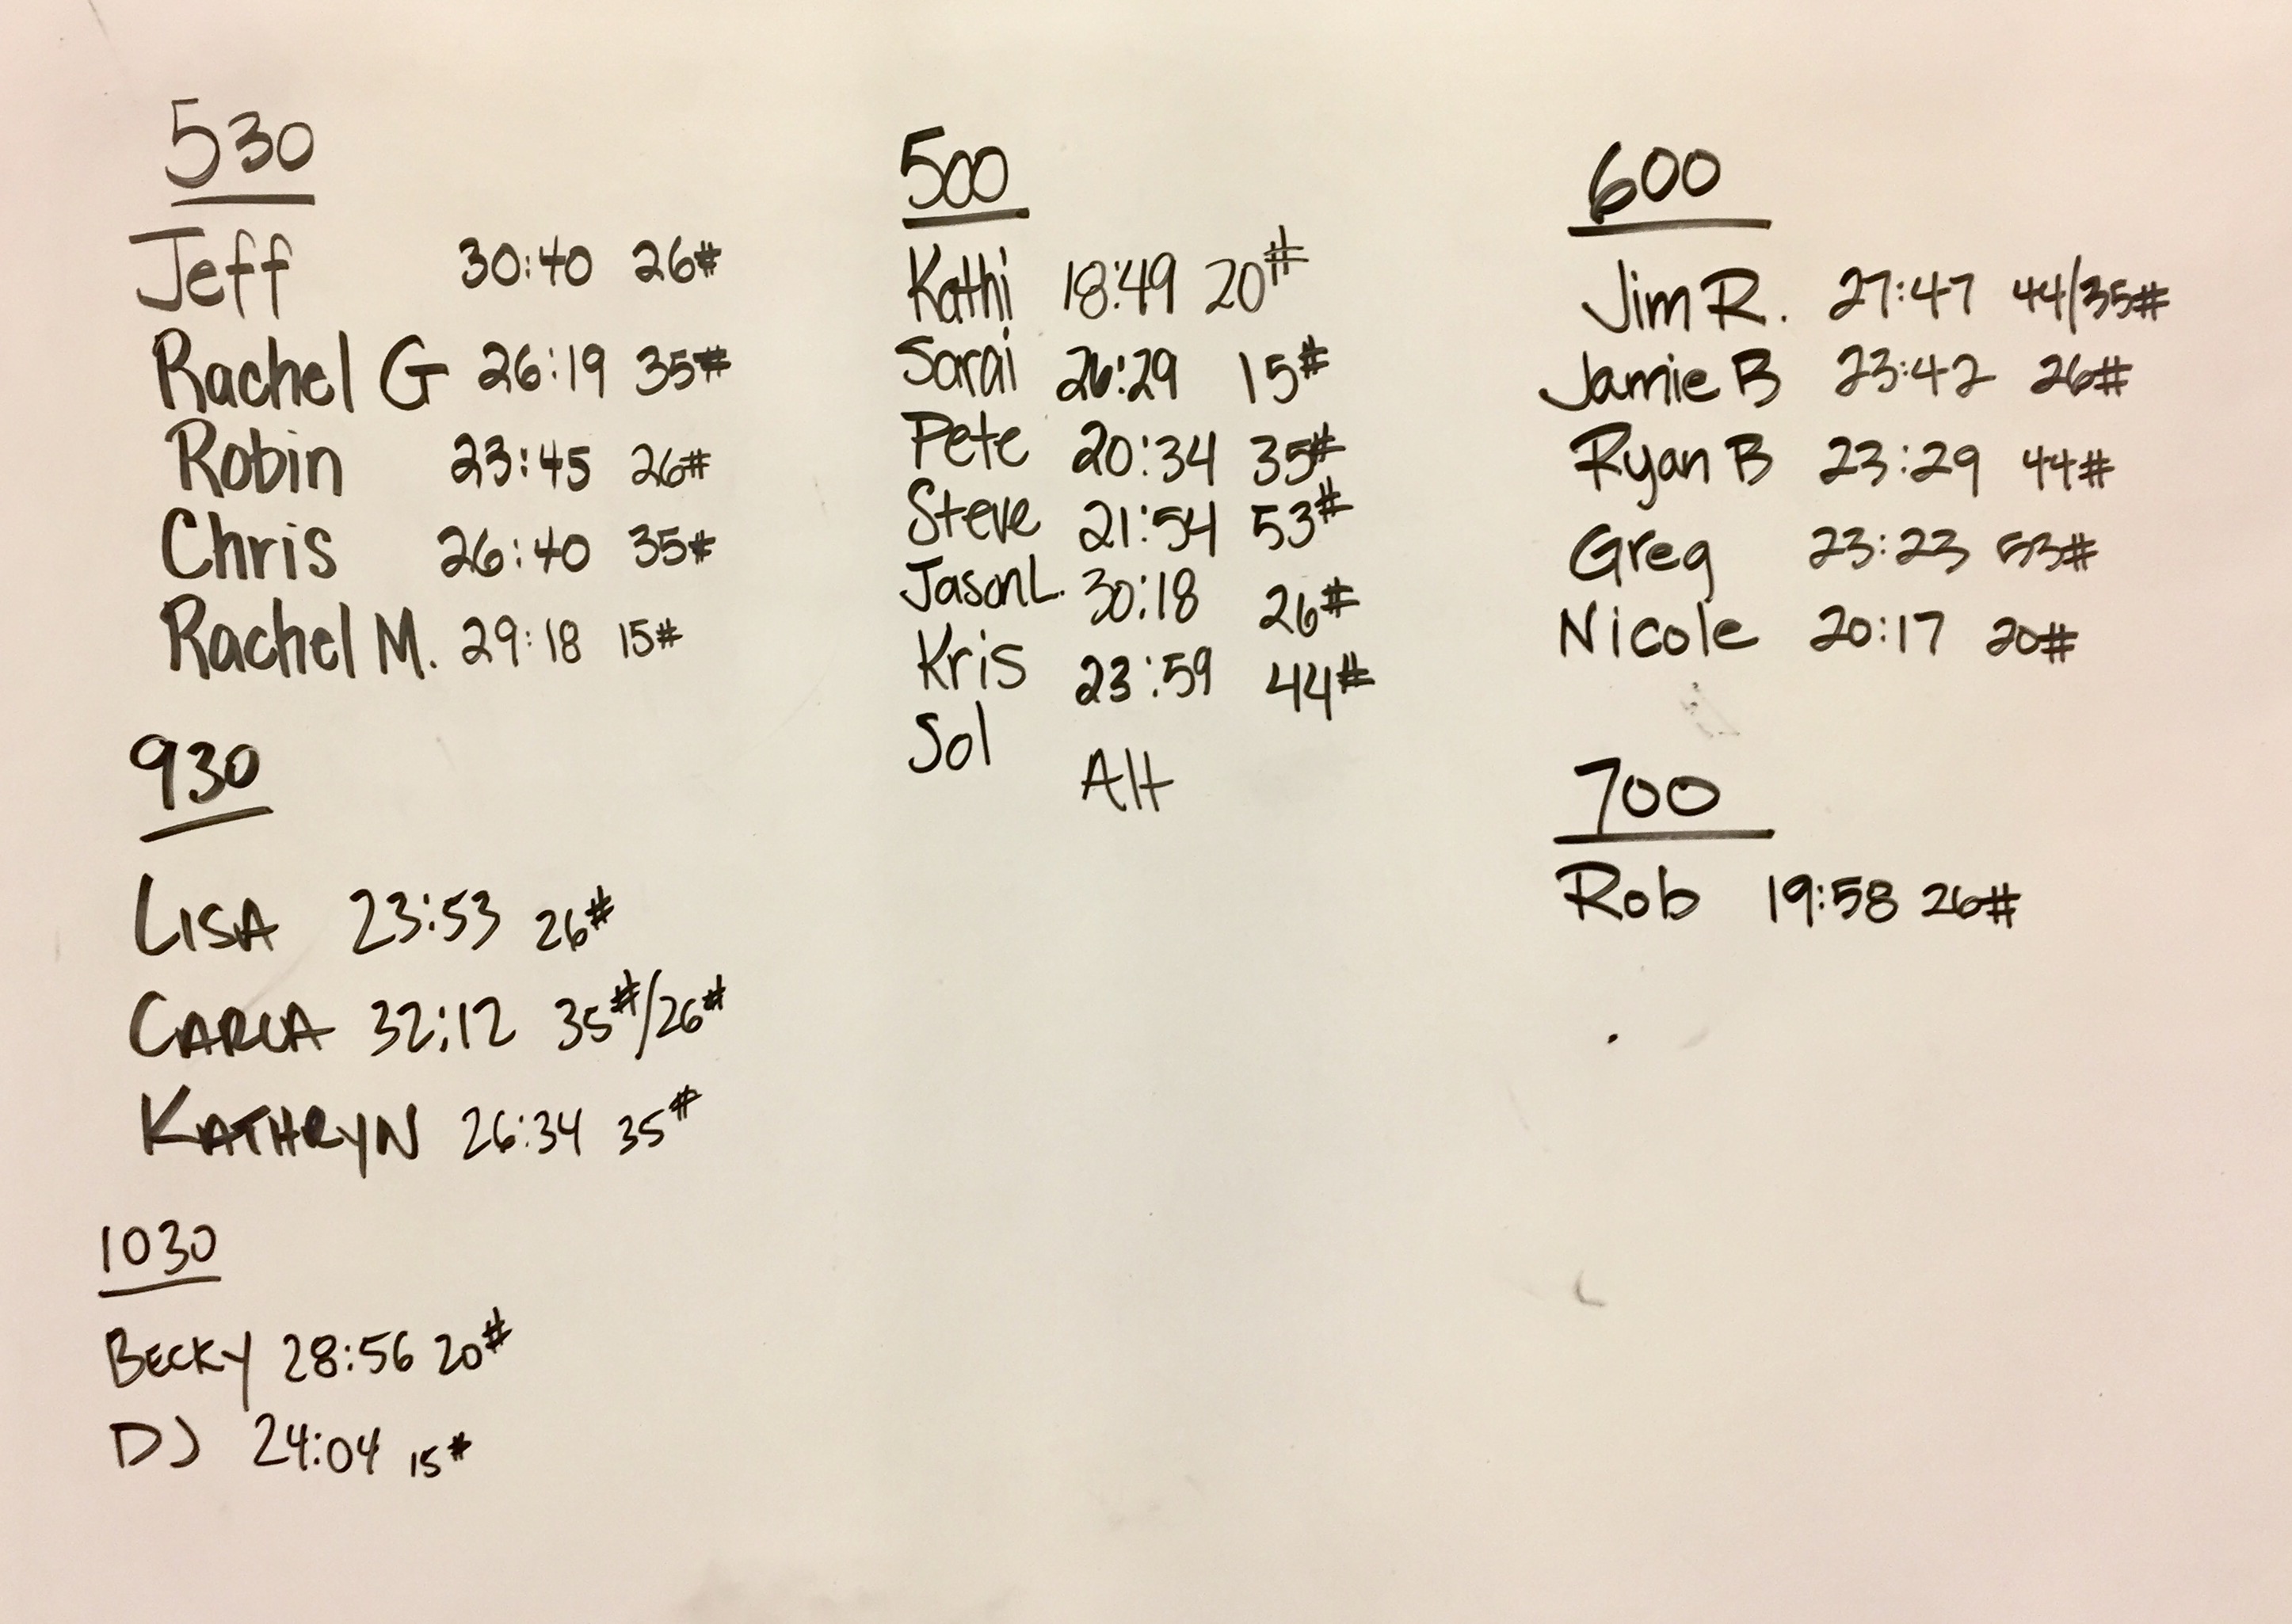 530
Jeff 30:40 26#
Rachel G 26:19 35#
Robin 23:45 26#
Chris 26:40 35#
Rachel M. 29:18 15#
930
LISA 23:53 26#
CARLA 32:12 35#/26#
KATHRYN 26:34 35#
1030
BECKY 28:56 20#
DJ 24:04 15#
500
Kathi 18:49 20#
Sarai 26:29 15#
Pete 20:34 35#
Steve 21:54 53#
Jason L. 30:18 26#
Kris 23:59 44#
Sol Alt
600
Jim R. 27:47 44/35#
Jamie B 23:42 26#
Ryan B 23:29 44#
Greg 23:23 53#
Nicole 20:17 20#
700
Rob 19:58 26#